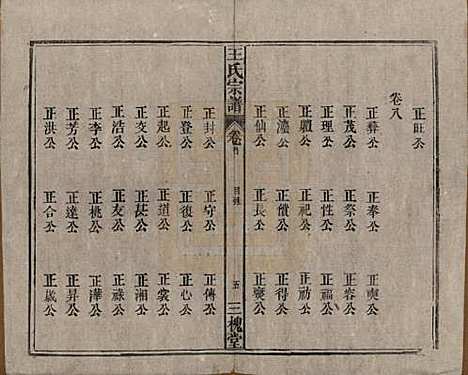 正旺公
卷八
正彝公 正奉公 正奭公
正茂公 正祭公 正容公
正理公 正性公 正福公
正體公 正祀公 正祊公
正瀛公 正償公 正得公
正仙公 正長公 正褒公
王氏宗譜 卷首 目錄 五 三槐堂
正封公 正守公 正傳公
正登公 正復公 正心公
正起公 正道公 正裳公
正交公 正甚公 正湘公
正浩公 正友公 正祿公
正李公 正桃公 正澤公
正芳公 正達公 正昇公
正洪公 正合公 正歲公